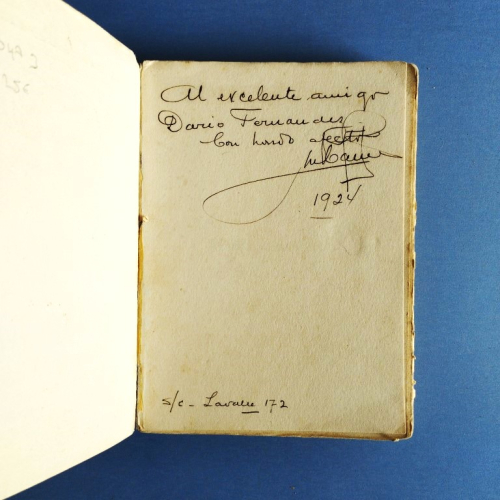 Al excelente amigo
Dario Fernandes
Con hondo afecto
1924
s/c - Lavalle 172